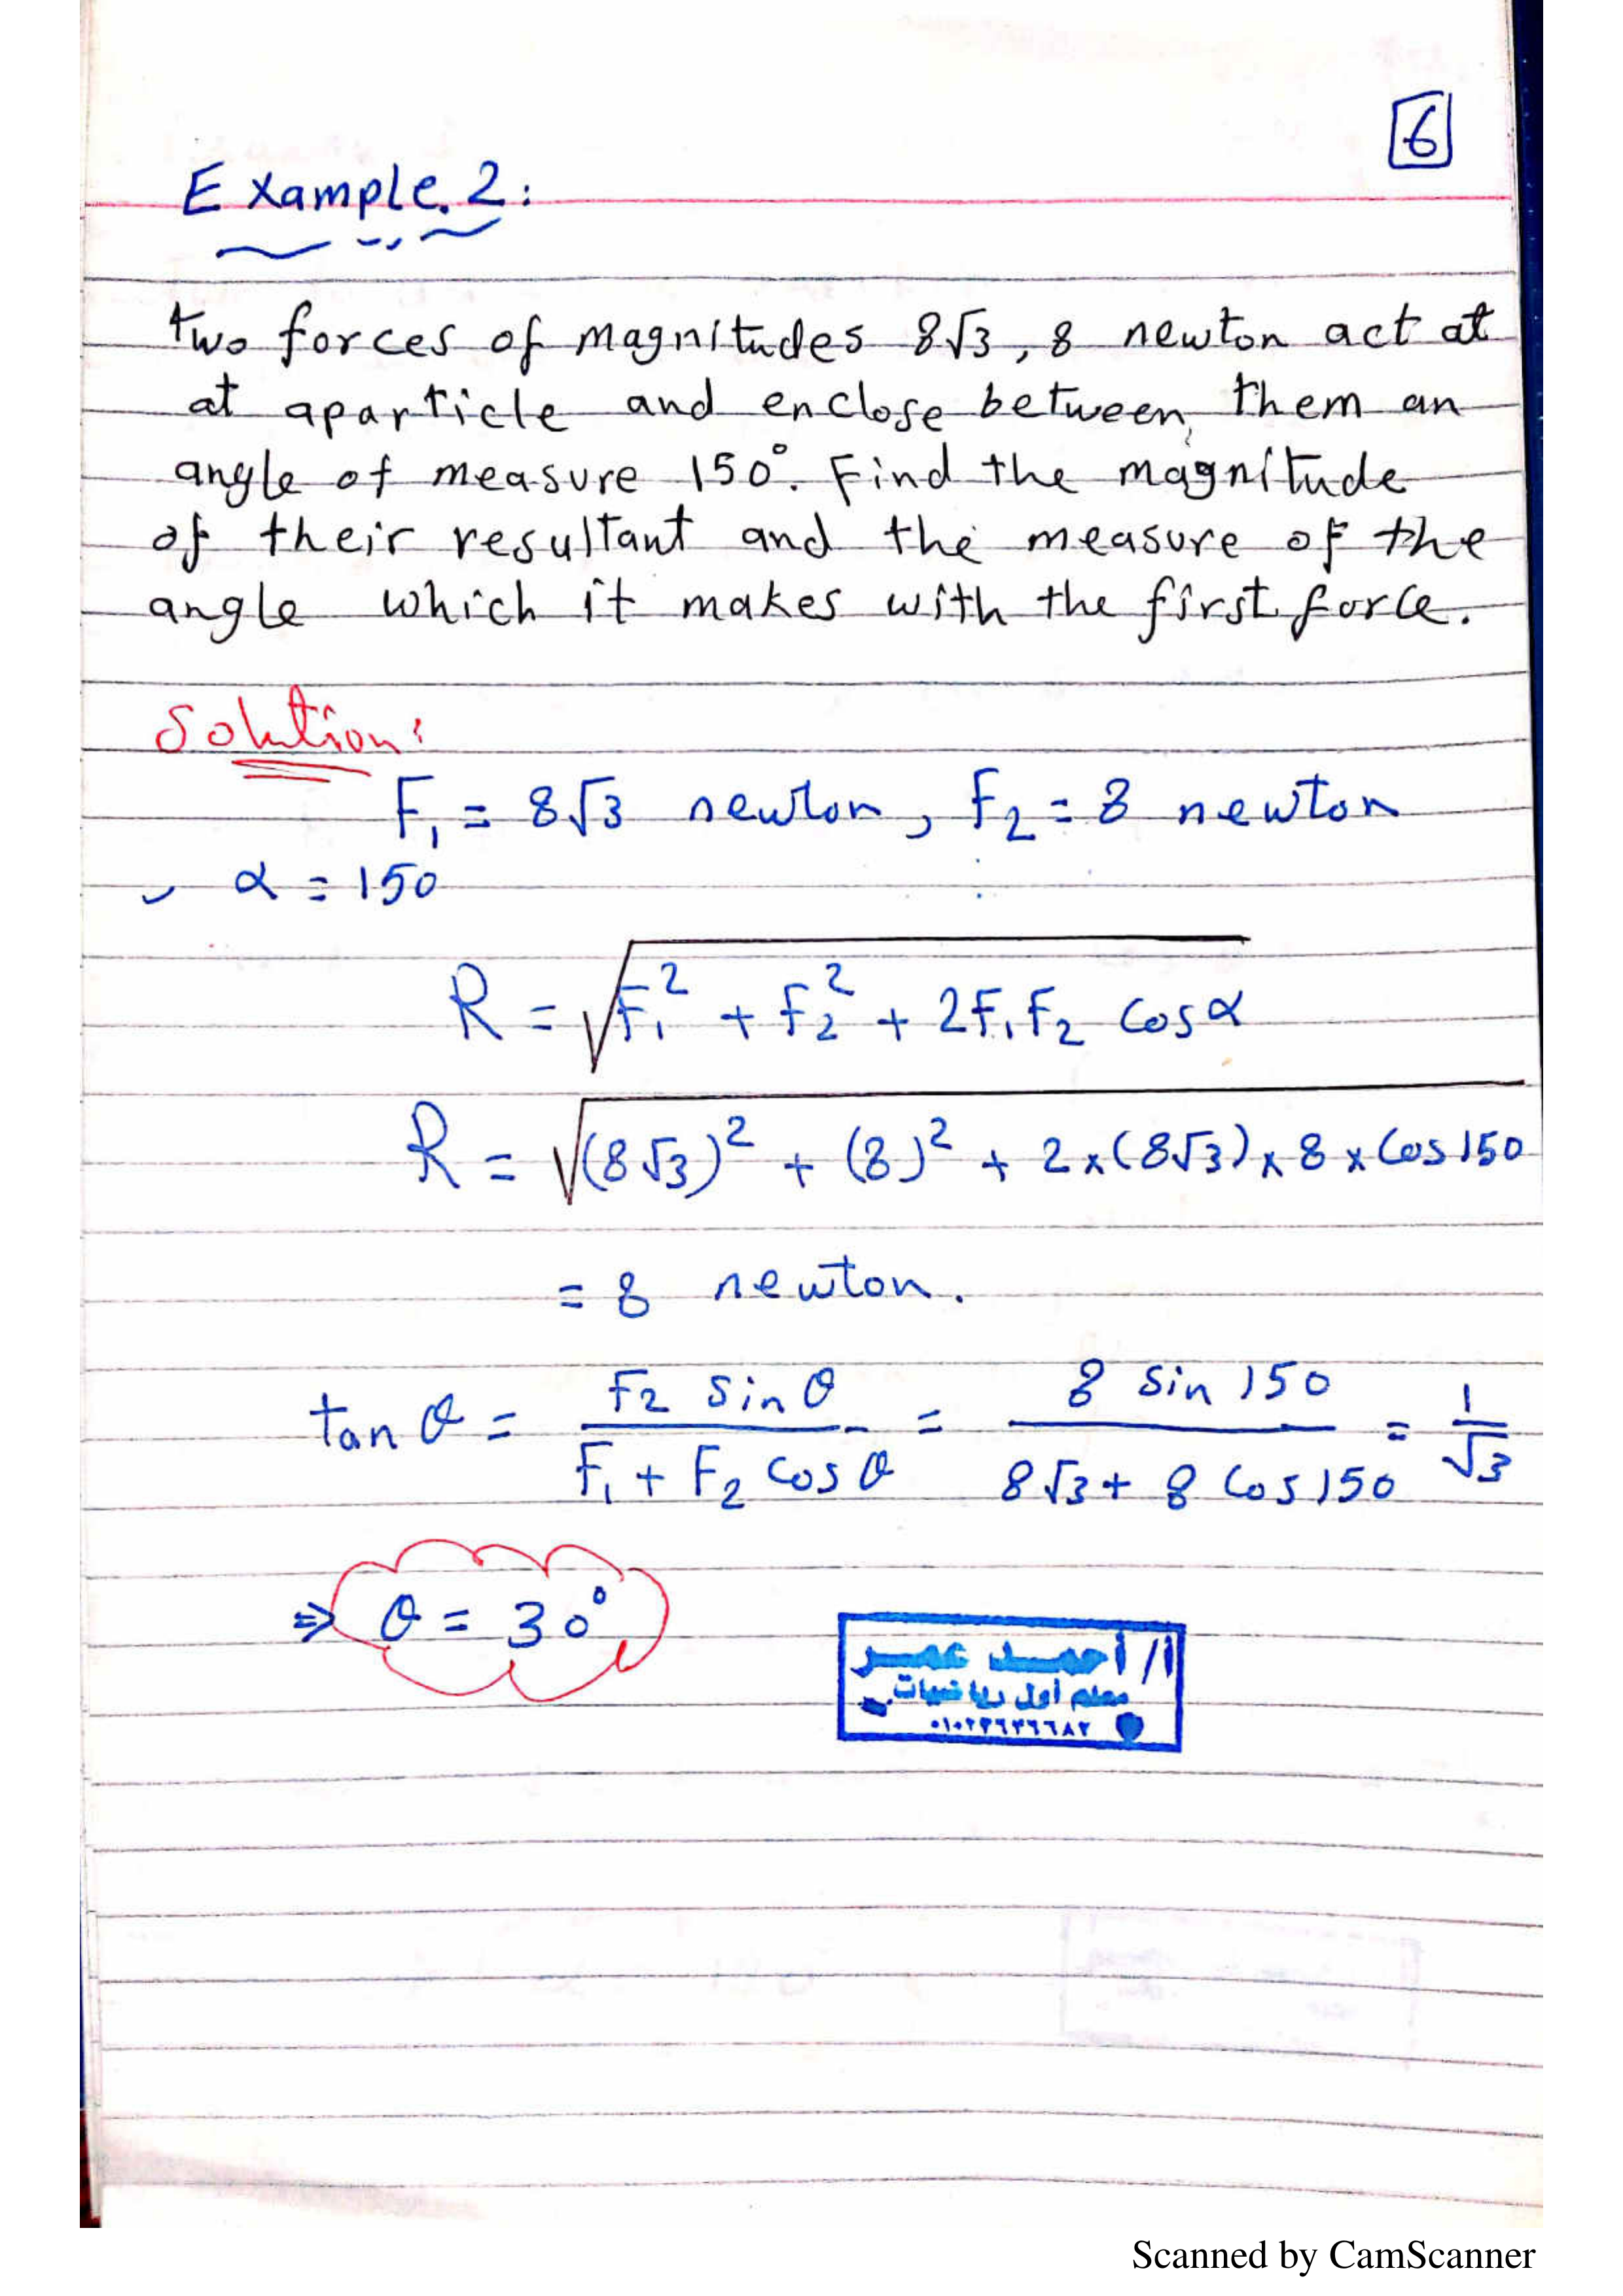 6
Example.2:
two forces of magnitudes 8√3, 8 newton act at
at aparticle and enclose between, them an
angle of measure 150°. Find the magnitude
of their resultant and the measure of the
angle which it makes with the first force.
Solution:
F₁ = 8√3 newton, F₂ = 8 newton
, α = 150
R = √(F₁² + F₂² + 2F₁F₂ cosα)
R = √((8√3)² + (8)² + 2×(8√3)×8×Cos150)
= 8 newton.
tan θ = (F₂ sin θ)/(F₁ + F₂ cos θ) = (8 sin 150)/(8√3 + 8 Cos 150) = 1/√3
⇒ θ = 30°
أ/ أحمد عمر
معلم أول رياضيات
Scanned by CamScanner